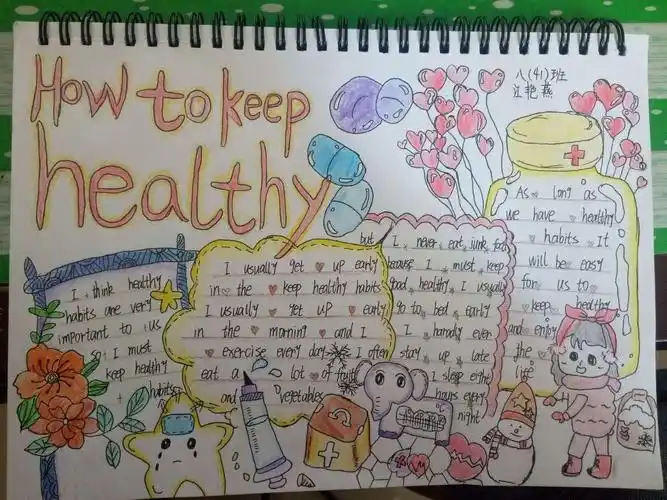 How to keep
healthy
八(41)班
江艳燕
I think healthy
habits are very
important to us
so I must
keep healthy
habits
I usually get up early
in the keep healthy habits
I usually get up early
in the morning and I
exercise every day I often
eat a lot of fruit
and vegetables
but I never eat junk food
because I must keep
good healthy I usually
go to bed early
I haradly ever
stay up late
I sleep eight
hours every
night
As long as
we have healthy
habits It
will be easy
for us to
keep healthy
and enjoy
the
life